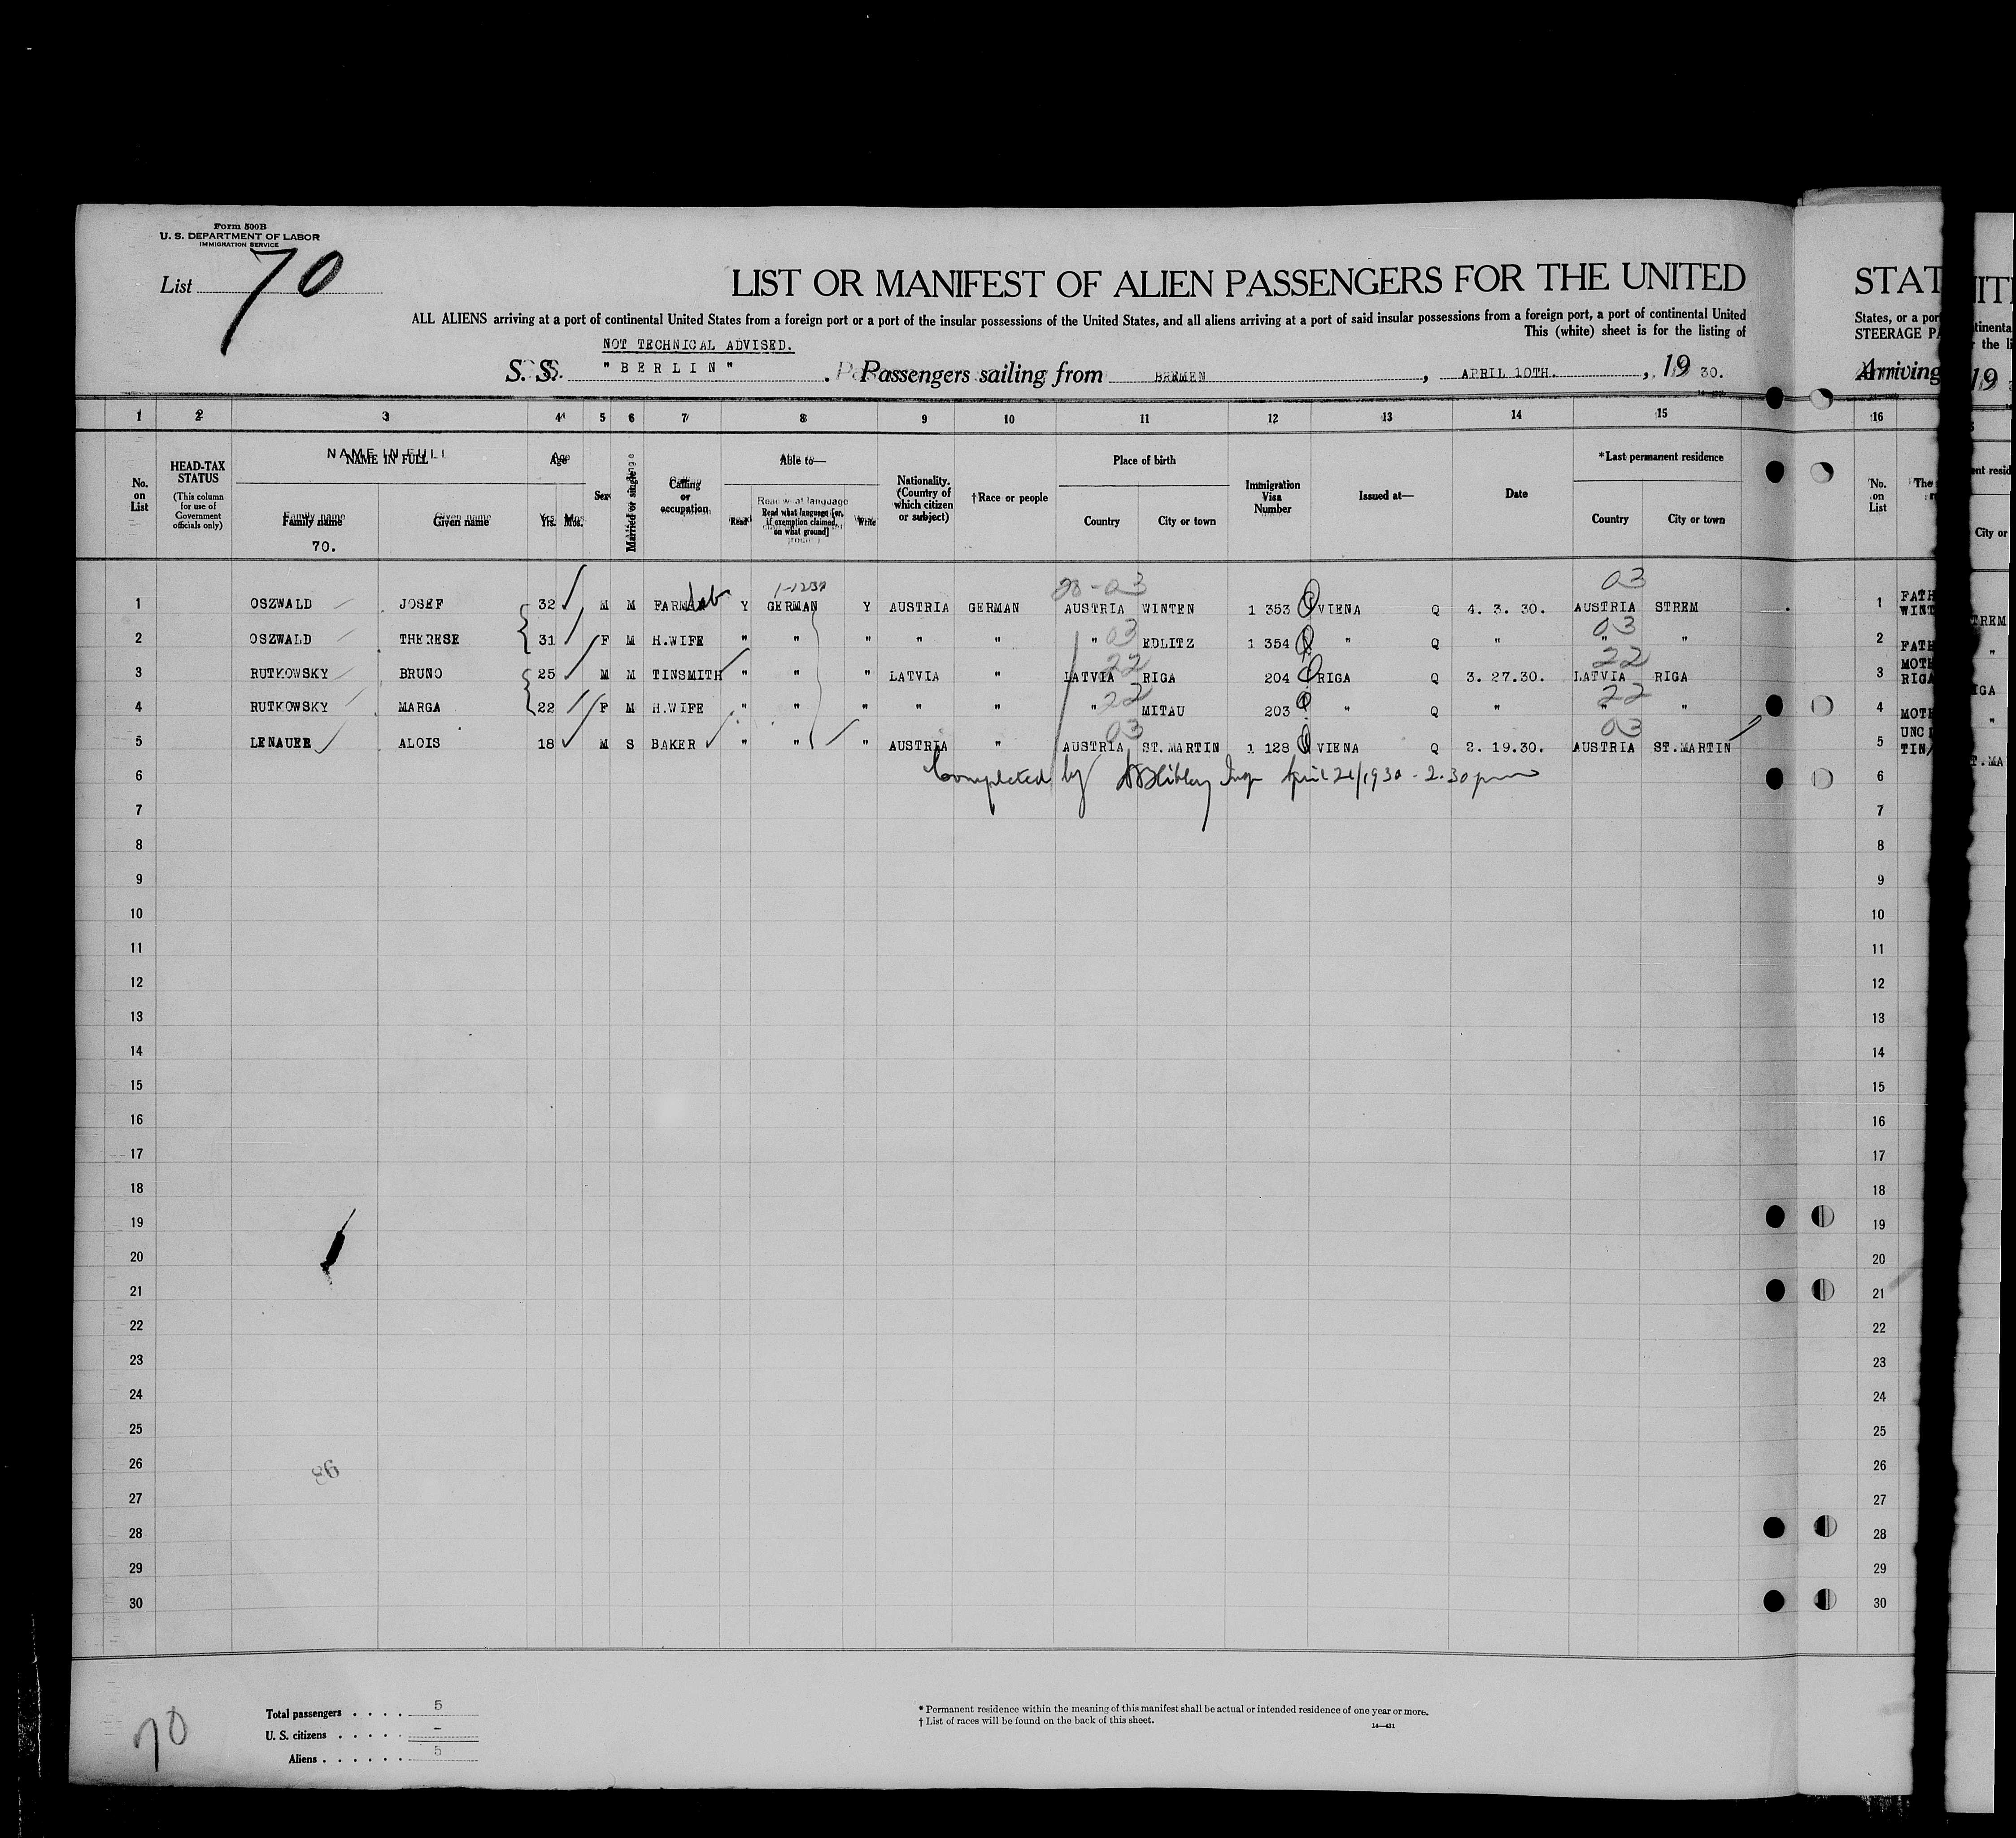 Form 500B
U. S. DEPARTMENT OF LABOR
IMMIGRATION SERVICE
List 70
LIST OR MANIFEST OF ALIEN PASSENGERS FOR THE UNITED
ALL ALIENS arriving at a port of continental United States from a foreign port or a port of the insular possessions of the United States, and all aliens arriving at a port of said insular possessions from a foreign port, a port of continental United
This (white) sheet is for the listing of
NOT TECHNICAL ADVISED.
S. S. "BERLIN" . Passengers sailing from BREMEN , APRIL 10TH. , 19 30.
1 2 3 4 5 6 7 8 9 10 11 12 13 14 15
No. on List
HEAD-TAX STATUS (This column for use of Government officials only)
NAME IN FULL
Family name
Given name
70.
Age
Yrs. Mos.
Sex
Married or single
Calling or occupation
Able to—
Read
Read what language [or, if exemption claimed, on what ground]
Write
Nationality. (Country of which citizen or subject)
†Race or people
Place of birth
Country
City or town
Immigration Visa Number
Issued at—
Date
*Last permanent residence
Country
City or town
1-1230 03 03
1 OSZWALD JOSEF 32 M M FARMER lab Y GERMAN Y AUSTRIA GERMAN AUSTRIA WINTEN 1 353 VIENA Q 4. 3. 30. AUSTRIA STREM
03 03
2 OSZWALD THERESE 31 F M H.WIFE " " " " " " EDLITZ 1 354 " Q " " "
22 22
3 RUTKOWSKY BRUNO 25 M M TINSMITH " " " LATVIA " LATVIA RIGA 204 RIGA Q 3. 27.30. LATVIA RIGA
22 22
4 RUTKOWSKY MARGA 22 F M H.WIFE " " " " " " MITAU 203 " Q " " "
03 03
5 LENAUER ALOIS 18 M S BAKER " " " AUSTRIA " AUSTRIA ST.MARTIN 1 128 VIENA Q 2. 19.30. AUSTRIA ST.MARTIN
6 Completed by Insp April 21/1930 - 2.30 pm
7
8
9
10
11
12
13
14
15
16
17
18
19
20
21
22
23
24
25
26
86
27
28
29
30
70
Total passengers . . . . 5
U. S. citizens . . . . . –
Aliens . . . . . . 5
* Permanent residence within the meaning of this manifest shall be actual or intended residence of one year or more.
† List of races will be found on the back of this sheet.
14—421
STAT
States, or a por
STEERAGE PA
Arriving
16
No. on List
The
1 FATH
WINT
2 FATH
3 MOTH
RIGA
4 MOTH
5 UNC
TIN/
6
7
8
9
10
11
12
13
14
15
16
17
18
19
20
21
22
23
24
25
26
27
28
29
30
ITI
tinenta
the li
19
nt resid
City or
TREM
"
IGA
"
T.MA